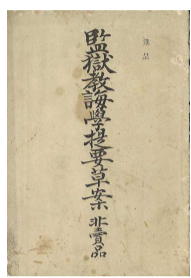 監獄教誨學提要草案 非賣品